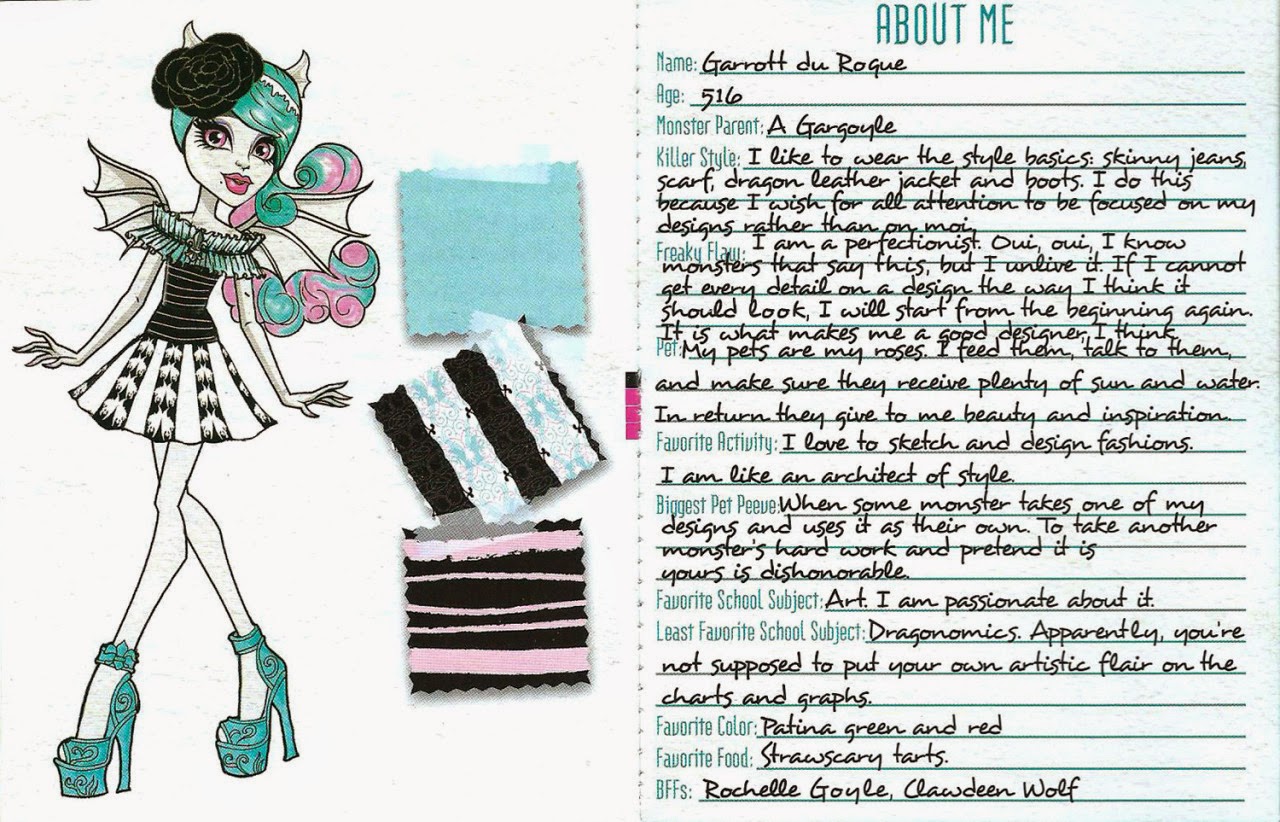 ABOUT ME
Name: Garrott du Roque
Age: 516
Monster Parent: A Gargoyle
Killer Style: I like to wear the style basics: skinny jeans,
scarf, dragon leather jacket and boots. I do this
because I wish for all attention to be focused on my
designs rather than on moi.
Freaky Flaw: I am a perfectionist. Oui, oui, I know
monsters that say this, but I unlive it. If I cannot
get every detail on a design the way I think it
should look, I will start from the beginning again.
It is what makes me a good designer, I think.
Pet: My pets are my roses. I feed them, talk to them,
and make sure they receive plenty of sun and water.
In return they give to me beauty and inspiration.
Favorite Activity: I love to sketch and design fashions.
I am like an architect of style.
Biggest Pet Peeve: When some monster takes one of my
designs and uses it as their own. To take another
monster's hard work and pretend it is
yours is dishonorable.
Favorite School Subject: Art. I am passionate about it.
Least Favorite School Subject: Dragonomics. Apparently, you're
not supposed to put your own artistic flair on the
charts and graphs.
Favorite Color: Patina green and red
Favorite Food: Strawscary tarts.
BFFs: Rochelle Goyle, Clawdeen Wolf